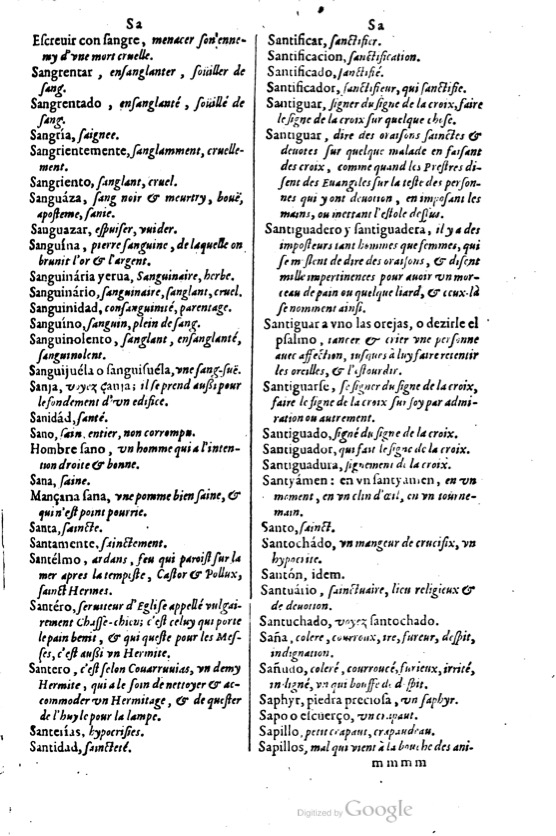 Sa
Escreuir con sangre, menacer son enne-
my d'vne mort cruelle.
Sangrentar, ensanglanter, soüiller de
sang.
Sangrentado, ensanglanté, soüillé de
sang.
Sangria, saignee.
Sangrientemente, sanglamment, cruelle-
ment.
Sangriento, sanglant, cruel.
Sanguáza, sang noir & meurtry, bouë,
aposteme, sanie.
Sanguazar, espuiser, vuider.
Sanguína, pierre sanguine, de laquelle on
brunit l'or & l'argent.
Sanguinária yerua, Sanguinaire, herbe.
Sanguinário, sanguinaire, sanglant, cruel.
Sanguinidad, consanguinité, parentage.
Sanguíno, sanguin, plein de sang.
Sanguinolento, sanglant, ensanglanté,
sanguinolent.
Sanguijuéla o sanguisuéla, vne sang-suë.
Sanja, voyez çanja; il se prend aussi pour
le fondement d'vn edifice.
Sanidád, santé.
Sano, sain, entier, non corrompu.
Hombre sano, vn homme qui a l'inten-
tion droite & bonne.
Sana, saine.
Mançana sana, vne pomme bien saine, &
qui n'est point pourrie.
Santa, saincte.
Santamente, sainctement.
Santélmo, ardans, feu qui paroist sur la
mer apres la tempeste, Castor & Pollux,
sainct Hermes.
Santéro, seruiteur d'Eglise appellé vulgai-
rement Chasse-chien; c'est celuy qui porte
le pain benit, & qui queste pour les Mes-
ses, c'est aussi vn Hermite.
Santero, c'est selon Couarruuias, vn demy
Hermite, qui a le soin de nettoyer & ac-
commoder vn Hermitage, & de quester
de l'huyle pour la lampe.
Santerías, hypocrisies.
Santidad, saincteté.
Sa
Santificar, sanctifier.
Santificacion, sanctification.
Santificado, sanctifié.
Santificador, sanctifieur, qui sanctifie.
Santiguar, signer du signe de la croix, faire
le signe de la croix sur quelque chose.
Santiguar, dire des oraisons sainctes &
deuotes sur quelque malade en faisant
des croix, comme quand les Prestres di-
sent des Euangiles sur la teste des person-
nes qui y ont deuotion, en imposant les
mains, ou mettant l'estole dessus.
Santiguadero y santiguadera, il y a des
imposteurs tant hommes que femmes, qui
se meslent de dire des oraisons, & disent
mille impertinences pour auoir vn mor-
ceau de pain ou quelque liard, & ceux-là
se nomment ainsi.
Santiguar a vno las orejas, o dezirle el
psalmo, tancer & crier vne personne
auec affection, iusques à luy faire retentir
les oreilles, & l'estourdir.
Santiguarse, se signer du signe de la croix,
faire le signe de la croix sur soy par admi-
ration ou autrement.
Santiguado, signé du signe de la croix.
Santiguador, qui fait le signe de la croix.
Santiguadura, signement de la croix.
Santyámen: en vn santyamen, en vn
moment, en vn clin d'œil, en vn tourne-
main.
Santo, sainct.
Santochádo, vn mangeur de crucifix, vn
hypocrite.
Santón, idem.
Santuário, sanctuaire, lieu religieux &
de deuotion.
Santuchado, voyez santochado.
Saña, colere, courroux, ire, fureur, despit,
indignation.
Sañudo, coleré, courroucé, furieux, irrité,
indigné, vn qui bouffe de despit.
Saphyr, piedra preciosa, vn saphyr.
Sapo o escuerço, vn crapaut.
Sapillo, petit crapaut, crapaudeau.
Sapillos, mal qui vient à la bouche des ani-
m m m m
Digitized by Google